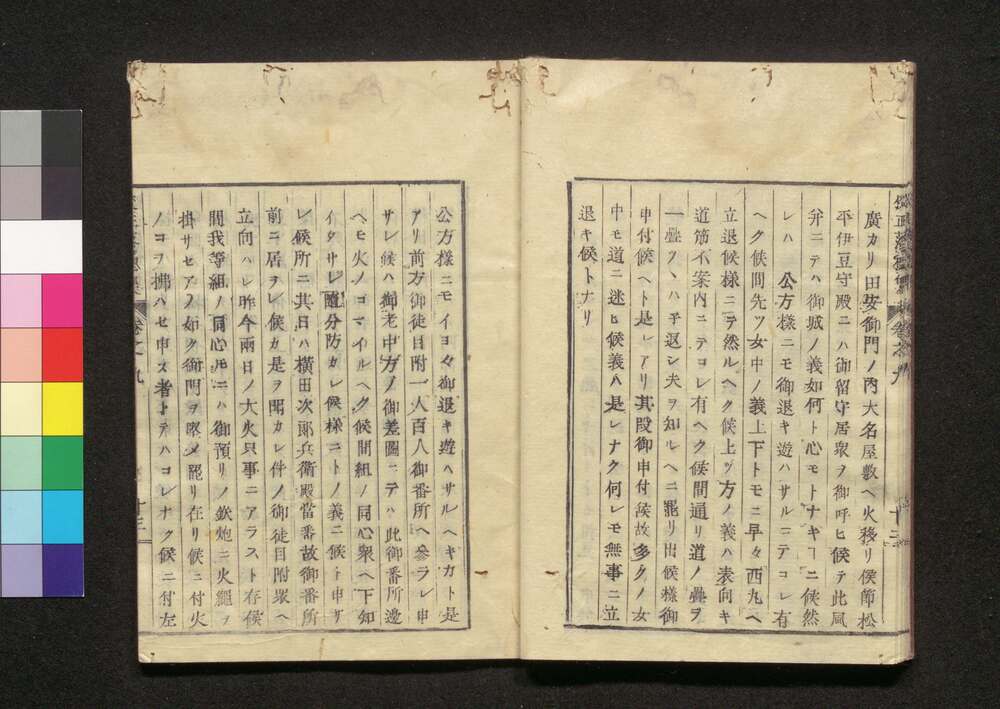 廣カリ田安御門ノ内大名屋敷ヘ火移リ候節松
平伊豆守殿ニハ御留守居衆ヲ御呼ヒ候テ此風
弁ニテハ御城ノ義如何ト心モトナキヿニ候然
レハ　公方様ニモ御退キ遊ハサルニテコレ有
ヘク候間先ツ女中ノ義上下トモニ早々西丸ヘ
立退候様ニテ然ルヘク候上ツ方ノ義ハ表向キ
道筋不案内ニテコレ有ヘク候間通リ道ノ疊ヲ
一疊ツヽハ平返シ夫ヲ知ルヘニ罷リ出候様御
申付候ヘト是レアリ其段御申付候故多クノ女
中モ道ニ迷ヒ候義ハ是レナク何レモ無事ニ立
退キ候トナリ
公方様ニモイヨ々御退キ遊ハサルヘキカト是
アリ前方御徒目附一人百人御番所ヘ參ラレ申
サレ候ハ御老中方ノ御差圖ニテハ此御番所邊
ヘモ火ノコマイルヘク候間組ノ同心衆ヘ下知
イタサレ隨分防カレ候様ニトノ義ニ候ト申サ
レ候所ニ其日ハ横田次郎兵衛殿當番故御番所
前ニ居ヲレ候カ是ヲ聞カレ件ノ御徒目附衆ヘ
立向ハレ昨今兩日ノ大火只事ニアラスト存候
間我等組ノ同心モニハ御預リノ鉄炮ニ火繩ヲ
掛サセアノ如ク御門ヲ堅メ罷リ在リ候ニ付火
ノコヲ拂ハセ申ス者トテハコレナク候ニ付左